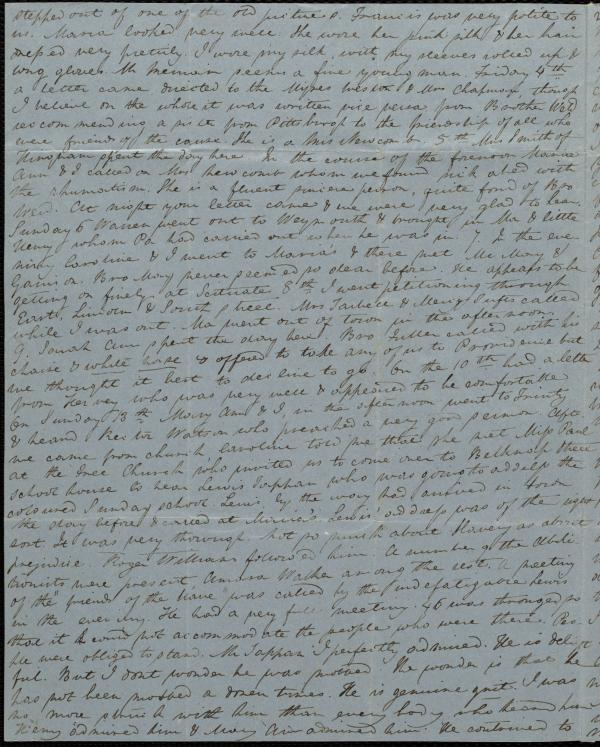 stepped out of one of the old pictures. Francis was very polite to
us. Maria looked very well. She wore her pink silk & her hair
dressed very prettily I wore my silk with my sleeves rolled up &
long gloves. Mr seems a fine young man. Friday 4th
a letter came directed to the Misses Weston & Mrs Chapman, though
I believe on the whole it was written vice versa from Brother Weld
recommending a from Pittsburgh to the friendship of all who
were friends of the cause. He is a Mrs Newcomb 5th Mrs Smith of
Hingham spent the day here. In the course of the forenoon Maria
Ann & I called on Mrs Newcomb whom we found sick abed with
the rhumatism. She is a fluent person, quite fond of Bro
Weld. At night your letter came & we were very glad to hear.
Sunday 6 Warren went out to Weymouth & brought in Ma & little
Henry whom Pa had carried out when he was in. 7. In the eve
ning Caroline & I went to Maria's & there met Mr May &
Garrison. Bro May never seemed so dear before. He appears to be
getting on finely at Scituate 8th I went petitioning through
East, Lincoln & South Street. Mrs Tarbell & Mary called
while I was out. Ma went out of town in the afternoon.
9. Jonah Ann spent the day here. Bro Fuller called with his
chaise & white horse & offered to take any of us to Providence but
we thought it best to decline to go. On the 10th had a lette
from Hervey who was very well & appeared to be comfortable
On Sunday 13th Mary Ann & I in the afternoon went to Trinity
& heard Rector Watson who preached a very good sermon. After
we came from church, Caroline told me that she met Miss Paul
at the Free Church who invited us to come over to Belknap Street
school house to hear Lewis Tappan who was going to address the
coloured Sunday school. Lewis, by the way had arrived in town
the day before & called at Maria's. Lewis' address was of the right
sort It was very thorough not so much about slavery as about
prejudice. Roger Williams followed him A number of the Aboli
tionists were present Amasa Walker among the rest. A meeting
of the "friends of the slave" was called by the indefatigable Lewis
in the evening. He had a very full meeting. 46 was thronged so
that it could not accommodate the people who were there. Peo
ple were obliged to stand. Mr Tappan I perfectly admired. He is delight
ful. But I dont wonder he was mobbed. The wonder is that he
has not been mobbed a dozen times. He is genuine grit. I was
no more struck with him than every body who heard him
Henry Ed admired him & Mary Ann admired him. He contrived to